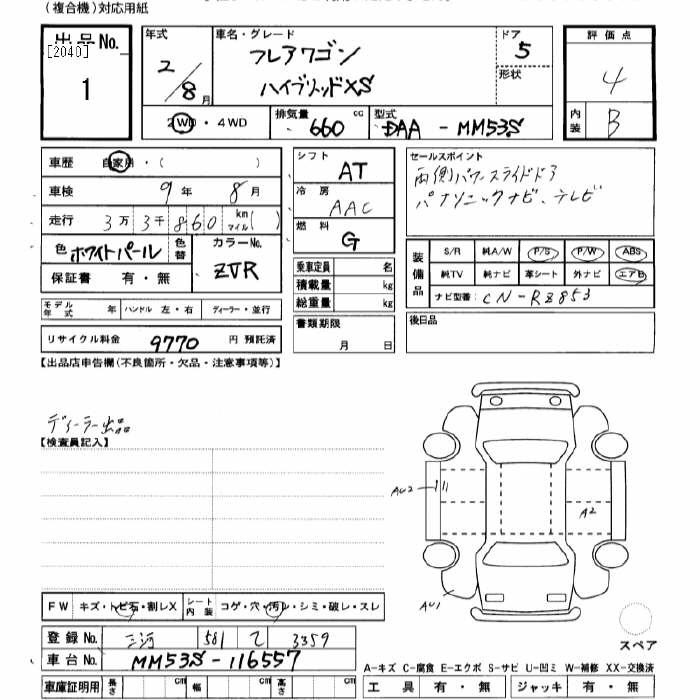 (複合機)対応用紙
出品No. [2040] 1
年式 2/8月
車名・グレード フレアワゴン ハイブリッドXS
ドア 5
形状
評価点 4
内装 B
2WD・4WD
排気量 660 cc
型式 DAA - MM53S
車歴 自家用・( )
車検 9年 8月
走行 3万3千860 km マイル( )
色 ホワイトパール 色替
カラーNo. ZVR
保証書 有・無
モデル年式 年 ハンドル 左・右 ディーラー・並行
リサイクル料金 9770 円 預託済
シフト AT
冷房 AAC
燃料 G
乗車定員 名
積載量 kg
総重量 kg
書類期限 月 日
セールスポイント
両側パワースライドドア
パナソニックナビ、テレビ
装備品 S/R 純A/W P/S P/W ABS
純TV 純ナビ 革シート 外ナビ エアB
ナビ型番 CN-RZ853
後日品
【出品店申告欄(不良箇所・欠品・注意事項等)】
ディーラー出品
【検査員記入】
AU2
A2
AU1
スペア
FW キズ・トビ石・割レX シート内装 コゲ・穴・汚レ・シミ・破レ・スレ
登録No. 三河 581 て 3359
車台No. MM53S-116557
車庫証明用 長さ cm 幅 cm 高さ cm
A-キズ C-腐食 E-エクボ S-サビ U-凹ミ W-補修 XX-交換済
工具 有・無 ジャッキ 有・無